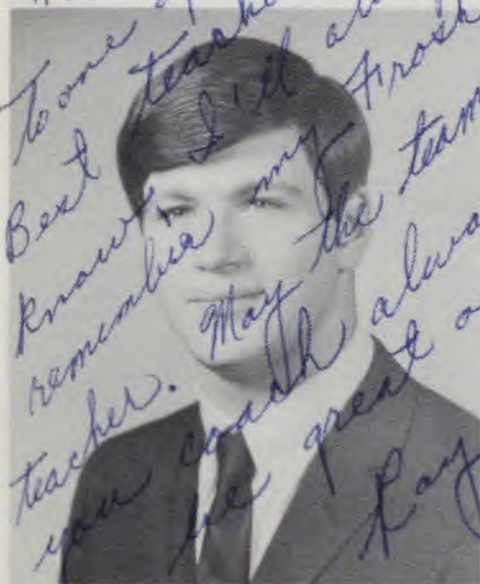 To one
Best teache
know I'll al
remember my Frosh
teacher. May the team
you coach alwa
be great o
Ray